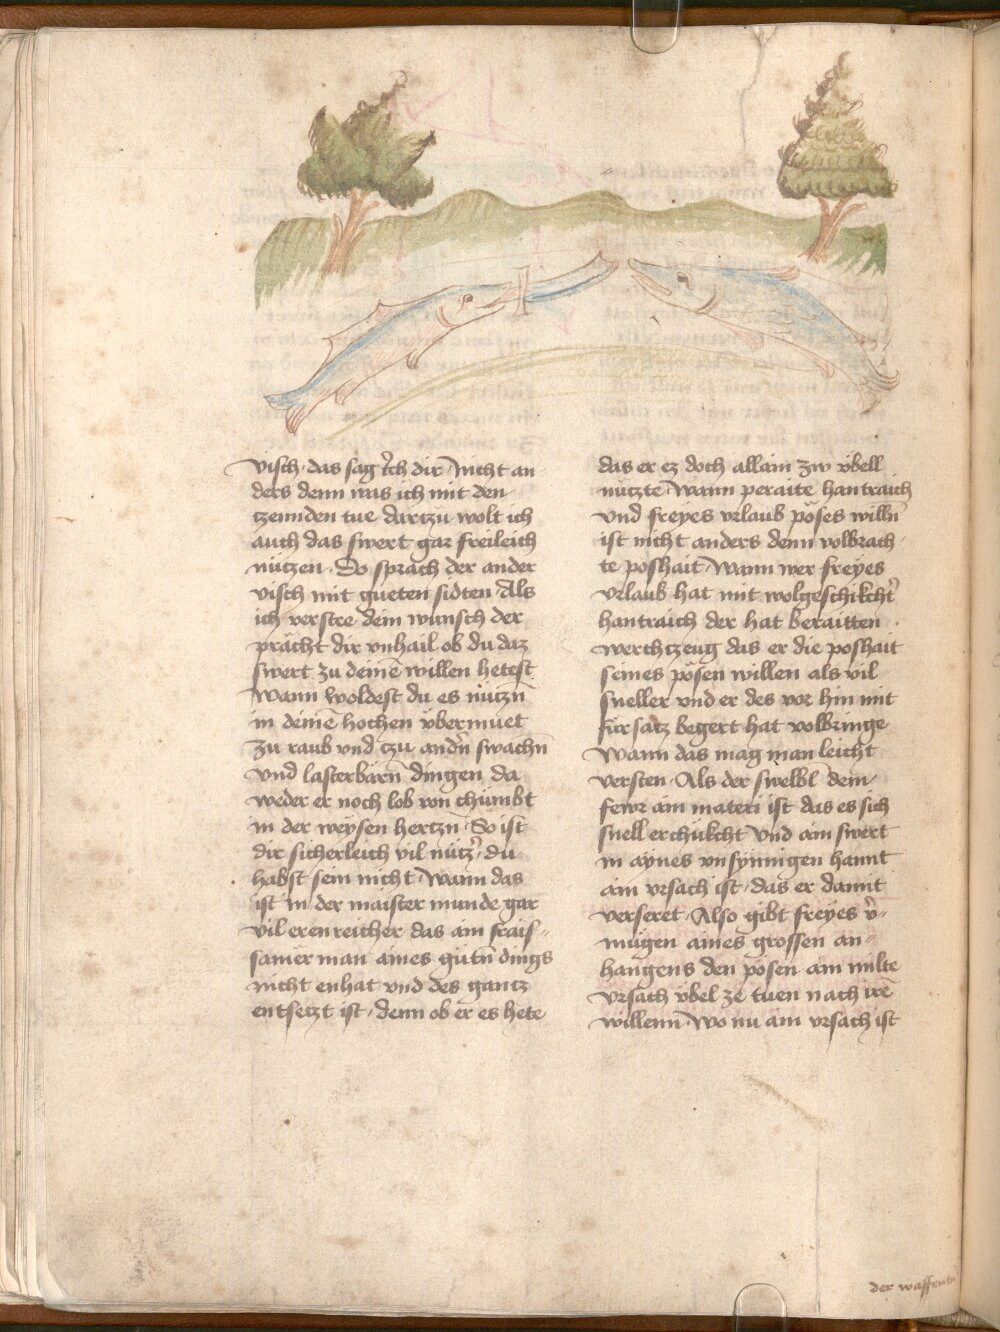 visch · das sag ich dir / Nicht an-
ders denn was ich mit den
zennden tue dartzu wolt ich
auch das swert gar freileich
nützen · Do sprach der ander
visch mit gueten sidten / Als
ich verstee dein wunsch der
prächt dir vnhail ob du daz
swert zu deinē willen hetest
Wann woldest du es nützn̄
in deinē hochen vbermuet
zu raub vnd zu andn̄ swachn̄
vnd lasterbärn̄ dingen da
weder er noch lob von chümbt
in der weysen hertzn̄ · So ist
dir sicherleich vil nütz̉ / du
habst sein nicht / Wann das
ist in der maister munde gar
vil erenreicher das ain frais-
samer man aines gütn̄ dings
nicht enhat vnd des gantz
entsetzt ist / denn ob er es hete
das er ez doch allain zw vbell
nützte / Wann peraite hantraich
vnd freyes vrlaub pöses willn̄
ist nicht anders denn volbrach-
te poshait / Wann wer freyes
vrlaub hat mit wolgeschikcht̉
hantraich der hat beraitten
werchzeug das er die poshait
seines pösen willen als vil
sneller vnd er des vor hin mit
fürsatz begert hat volbringe
Wann das mag man leicht
versten · Als der swelbl dem
fewr ain materi ist das es sich
snell erchükcht Vnd ain swert
in aynes vnsynnigen hannt
ain vrsach ist / das er damit
verseret · Also gibt freyes v̉-
mügen aines grossen an-
hangens den pösen ain milte
vrsach vbel ze tuen nach irē
willenn · Wo nu ain vrsach ist
der waffenn